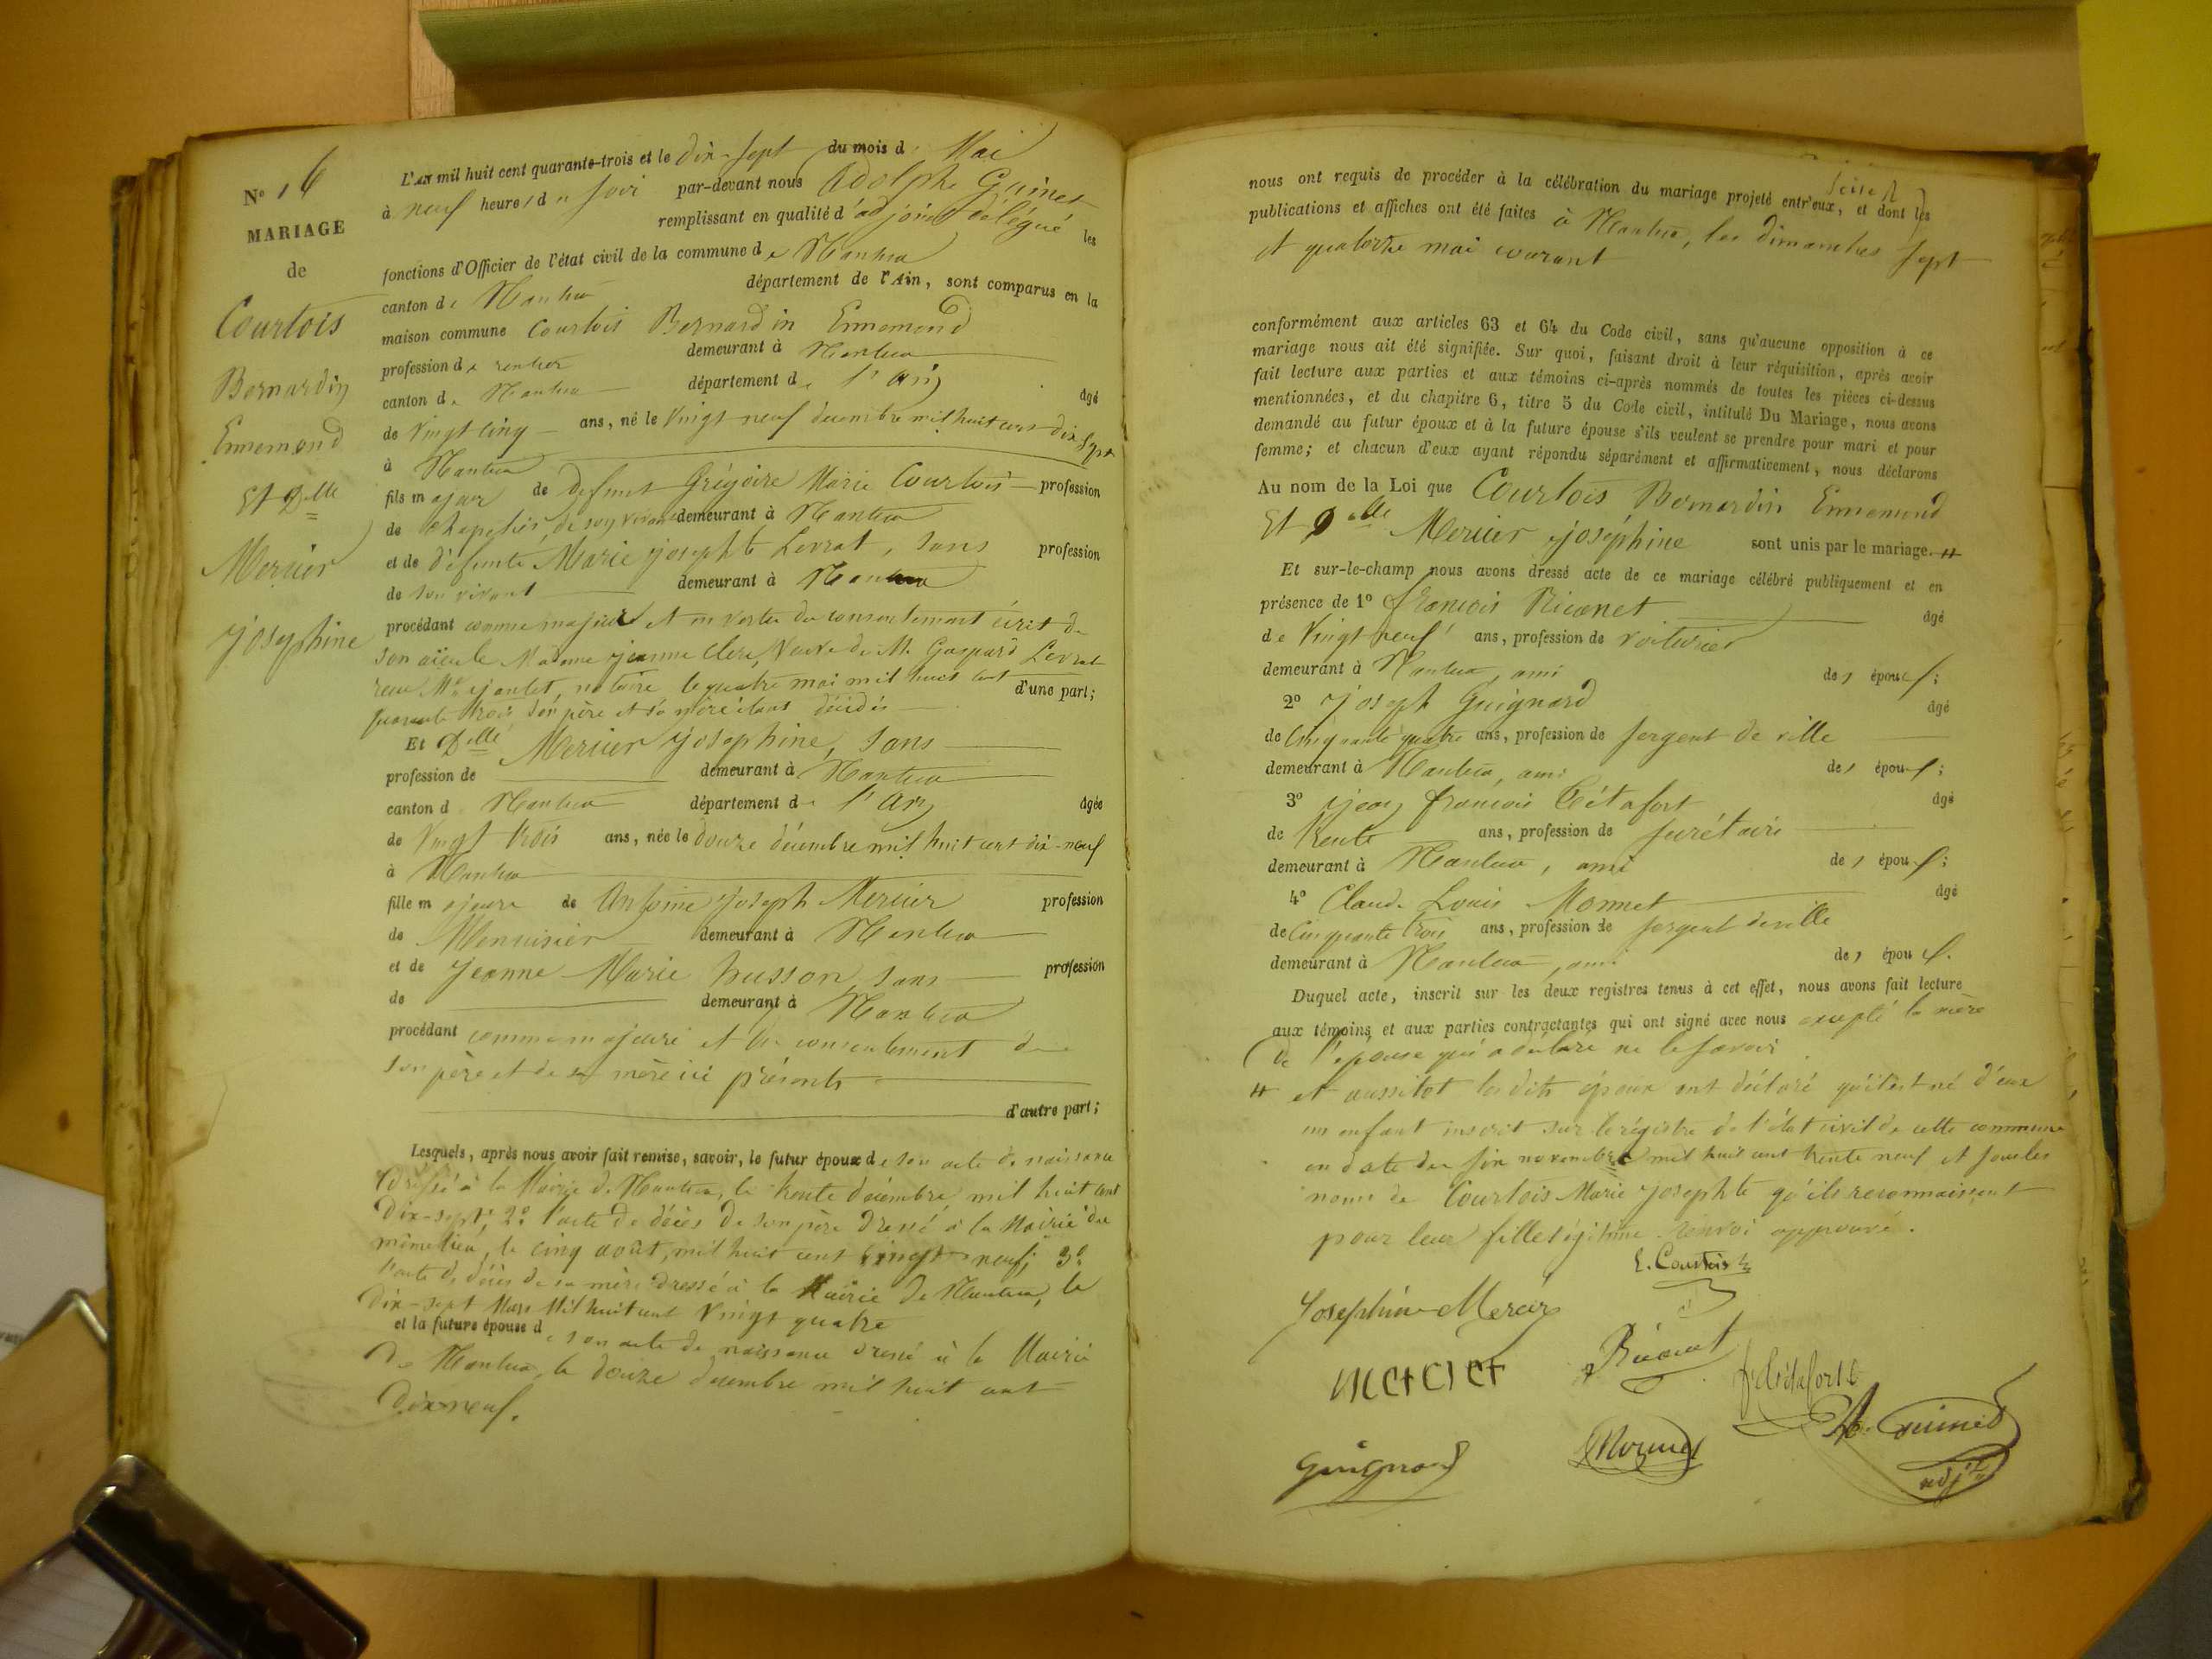 N° 16
MARIAGE
de
Courtois
Bernardin
Ennemond
Et Delle
Mercier
Josephine
L'an mil huit cent quarante-trois et le dix-sept du mois de Mai
à neuf heures du soir par-devant nous Adolphe Guinet
remplissant en qualité d'adjoint délégué les
fonctions d'Officier de l'état civil de la commune de Nantua
canton de Nantua département de l'Ain, sont comparus en la
maison commune Courtois Bernardin Ennemond
profession de rentier demeurant à Nantua
canton de Nantua département de l'Ain âgé
de Vingt cinq ans, né le Vingt neuf decembre mil huit cent dix sept
à Nantua
fils majeur de defunt Grégoire Marie Courtois profession
de chapelier, de son vivant demeurant à Nantua
et de défunte Marie josephte Levrat, sans profession
de son vivant demeurant à Nantua
procédant comme majeur et en vertu du consentement écrit de
son aïeule Madame jeanne Clerc, Veuve de Mr Gaspard Levrat
reçu Me notaire le quatre mai mil huit cent d'une part;
quarante trois, son père et sa mère étant décédés
Et Delle Mercier josephine, sans
profession de demeurant à Nantua
canton de Nantua département de l'Ain âgée
de Vingt trois ans, née le douze décembre mil huit cent dix-neuf
à Nantua
fille majeure de Antoine joseph Mercier profession
de Menuisier demeurant à Nantua
et de Jeanne Marie husson, sans profession
de demeurant à Nantua
procédant comme majeure et du consentement de
son père et de sa mère ici présents
d'autre part;
Lesquels, après nous avoir fait remise, savoir, le futur époux de son acte de naissance
Dressé à la Mairie de Nantua, le trente décembre mil huit cent
Dix-sept; 2° l'acte de décès de son père Dressé à la Mairie du
même lieu, le cinq août, mil huit cent vingt-neuf; 3°
l'acte de décès de sa mère dressé à la Mairie de Nantua, le
Dix-sept Mars Mil huit cent Vingt quatre
et la future épouse de son acte de naissance dressé à la Mairie
de Nantua, le douze decembre mil huit cent
Dix neuf.
nous ont requis de procéder à la célébration du mariage projeté entr'eux, et dont les
publications et affiches ont été faites à Nantua, les dimanches sept
et quatorze mai courant
conformément aux articles 63 et 64 du Code civil, sans qu'aucune opposition à ce
mariage nous ait été signifiée. Sur quoi, faisant droit à leur réquisition, après avoir
fait lecture aux parties et aux témoins ci-après nommés de toutes les pièces ci-dessus
mentionnées, et du chapitre 6, titre 5 du Code civil, intitulé Du Mariage, nous avons
demandé au futur époux et à la future épouse s'ils veulent se prendre pour mari et pour
femme; et chacun d'eux ayant répondu séparément et affirmativement, nous déclarons
Au nom de la Loi que Courtois Bernardin Ennemond
Et Delle Mercier joséphine sont unis par le mariage. #
Et sur-le-champ nous avons dressé acte de ce mariage célébré publiquement et en
présence de 1° françois Ricanet âgé
de Vingt neuf ans, profession de voiturier
demeurant à Nantua, ami des époux;
2° joseph Guignard âgé
de Cinquante quatre ans, profession de sergent de ville
demeurant à Nantua, ami des époux;
3° jean françois Détafort âgé
de trente ans, profession de secrétaire
demeurant à Nantua, ami des époux;
4° Claude Louis Monnet âgé
de Cinquante trois ans, profession de sergent de ville
demeurant à Nantua, ami des époux.
Duquel acte, inscrit sur les deux registres tenus à cet effet, nous avons fait lecture
aux témoins et aux parties contractantes qui ont signé avec nous excepté la mère
de l'épouse qui a déclaré ne le savoir
# et aussitôt les dits époux ont déclaré qu'il est né d'eux
un enfant inscrit sur le régistre de l'état civil de cette commune
en date du six novembre mil huit cent trente neuf et sous les
noms de Courtois Marie josephte qu'ils reconnaissent
pour leur fille légitime. renvoi approuvé.
E. Courtois
Josephine Mercier
Mercier
Ricanet
Guignard
Monnet
A. Guinet
adjt